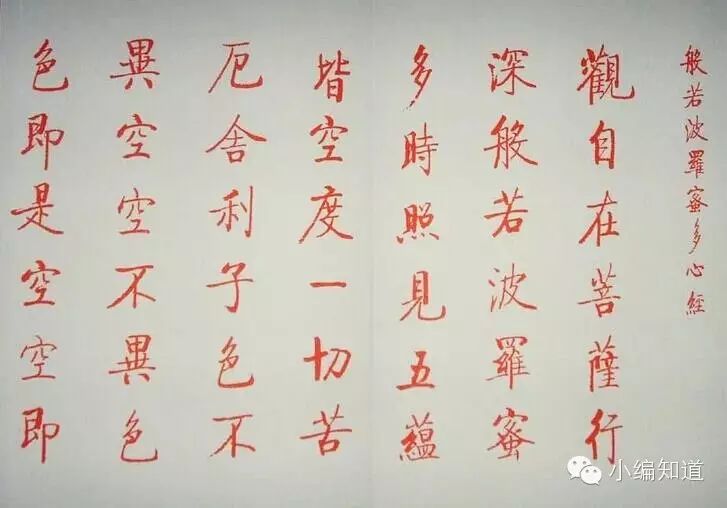 般若波羅蜜多心經
觀自在菩薩行
深般若波羅蜜
多時照見五蘊
皆空度一切苦
厄舍利子色不
異空空不異色
色即是空空即
小编知道